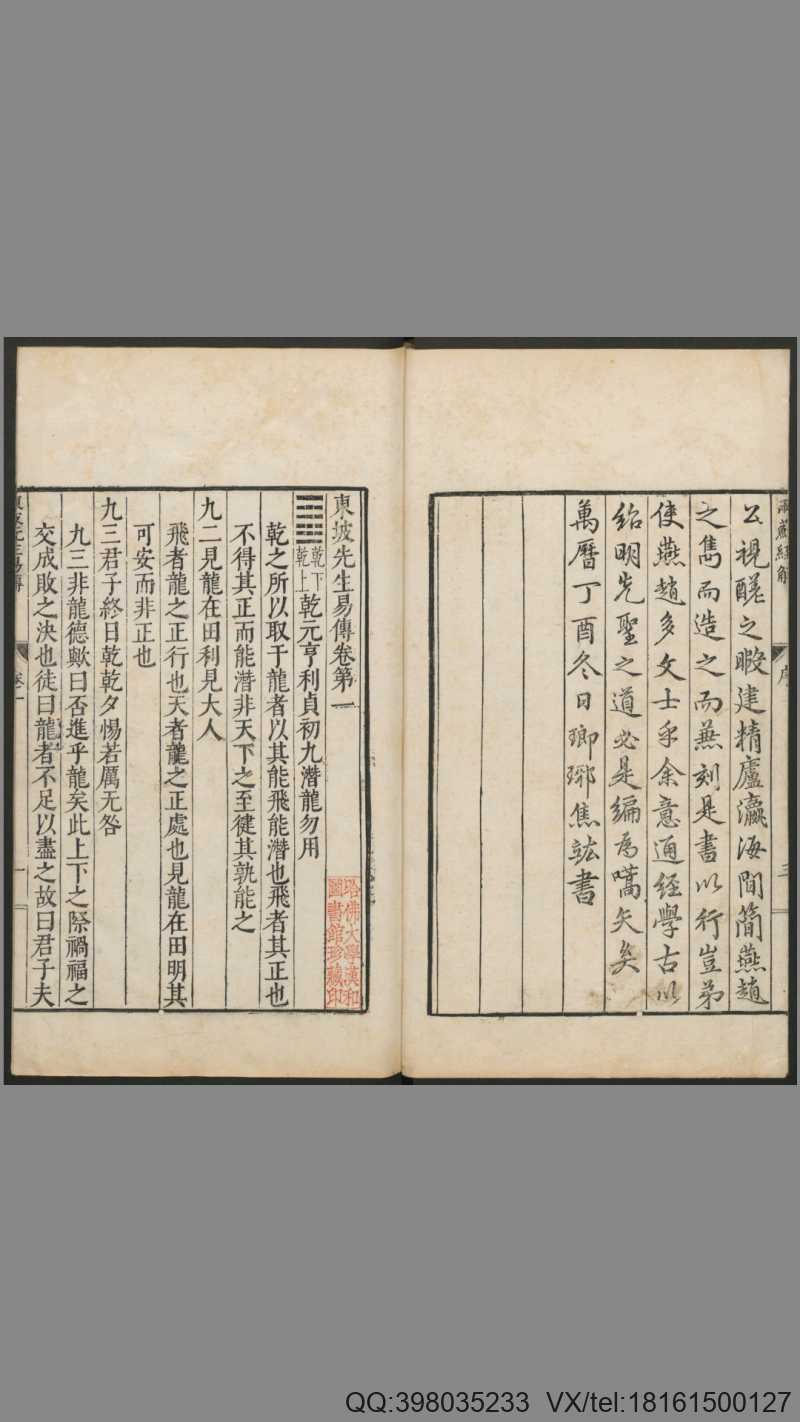 兩蘇經解
序
三
公視醝之暇建精廬瀛海間簡燕趙
之雋而造之而燕刻是書以行豈弟
使燕趙多文士乎余意通經學古以
紹明先聖之道必是編為嚆矢矣
萬曆丁酉冬日瑯琊焦竑書
東坡先生易傳卷第一
乾下
乾上
乾元亨利貞初九潛龍勿用
乾之所以取于龍者以其能飛能潛也飛者其正也
不得其正而能潛非天下之至健其孰能之
九二見龍在田利見大人
飛者龍之正行也天者龍之正處也見龍在田明其
可安而非正也
九三君子終日乾乾夕惕若厲无咎
九三非龍德歟曰否進乎龍矣此上下之際禍福之
交成敗之決也徒曰龍者不足以盡之故曰君子夫
東坡先生易傳
卷一
一
哈佛大學漢和
圖書館珍藏印
QQ:398035233 VX/tel:18161500127